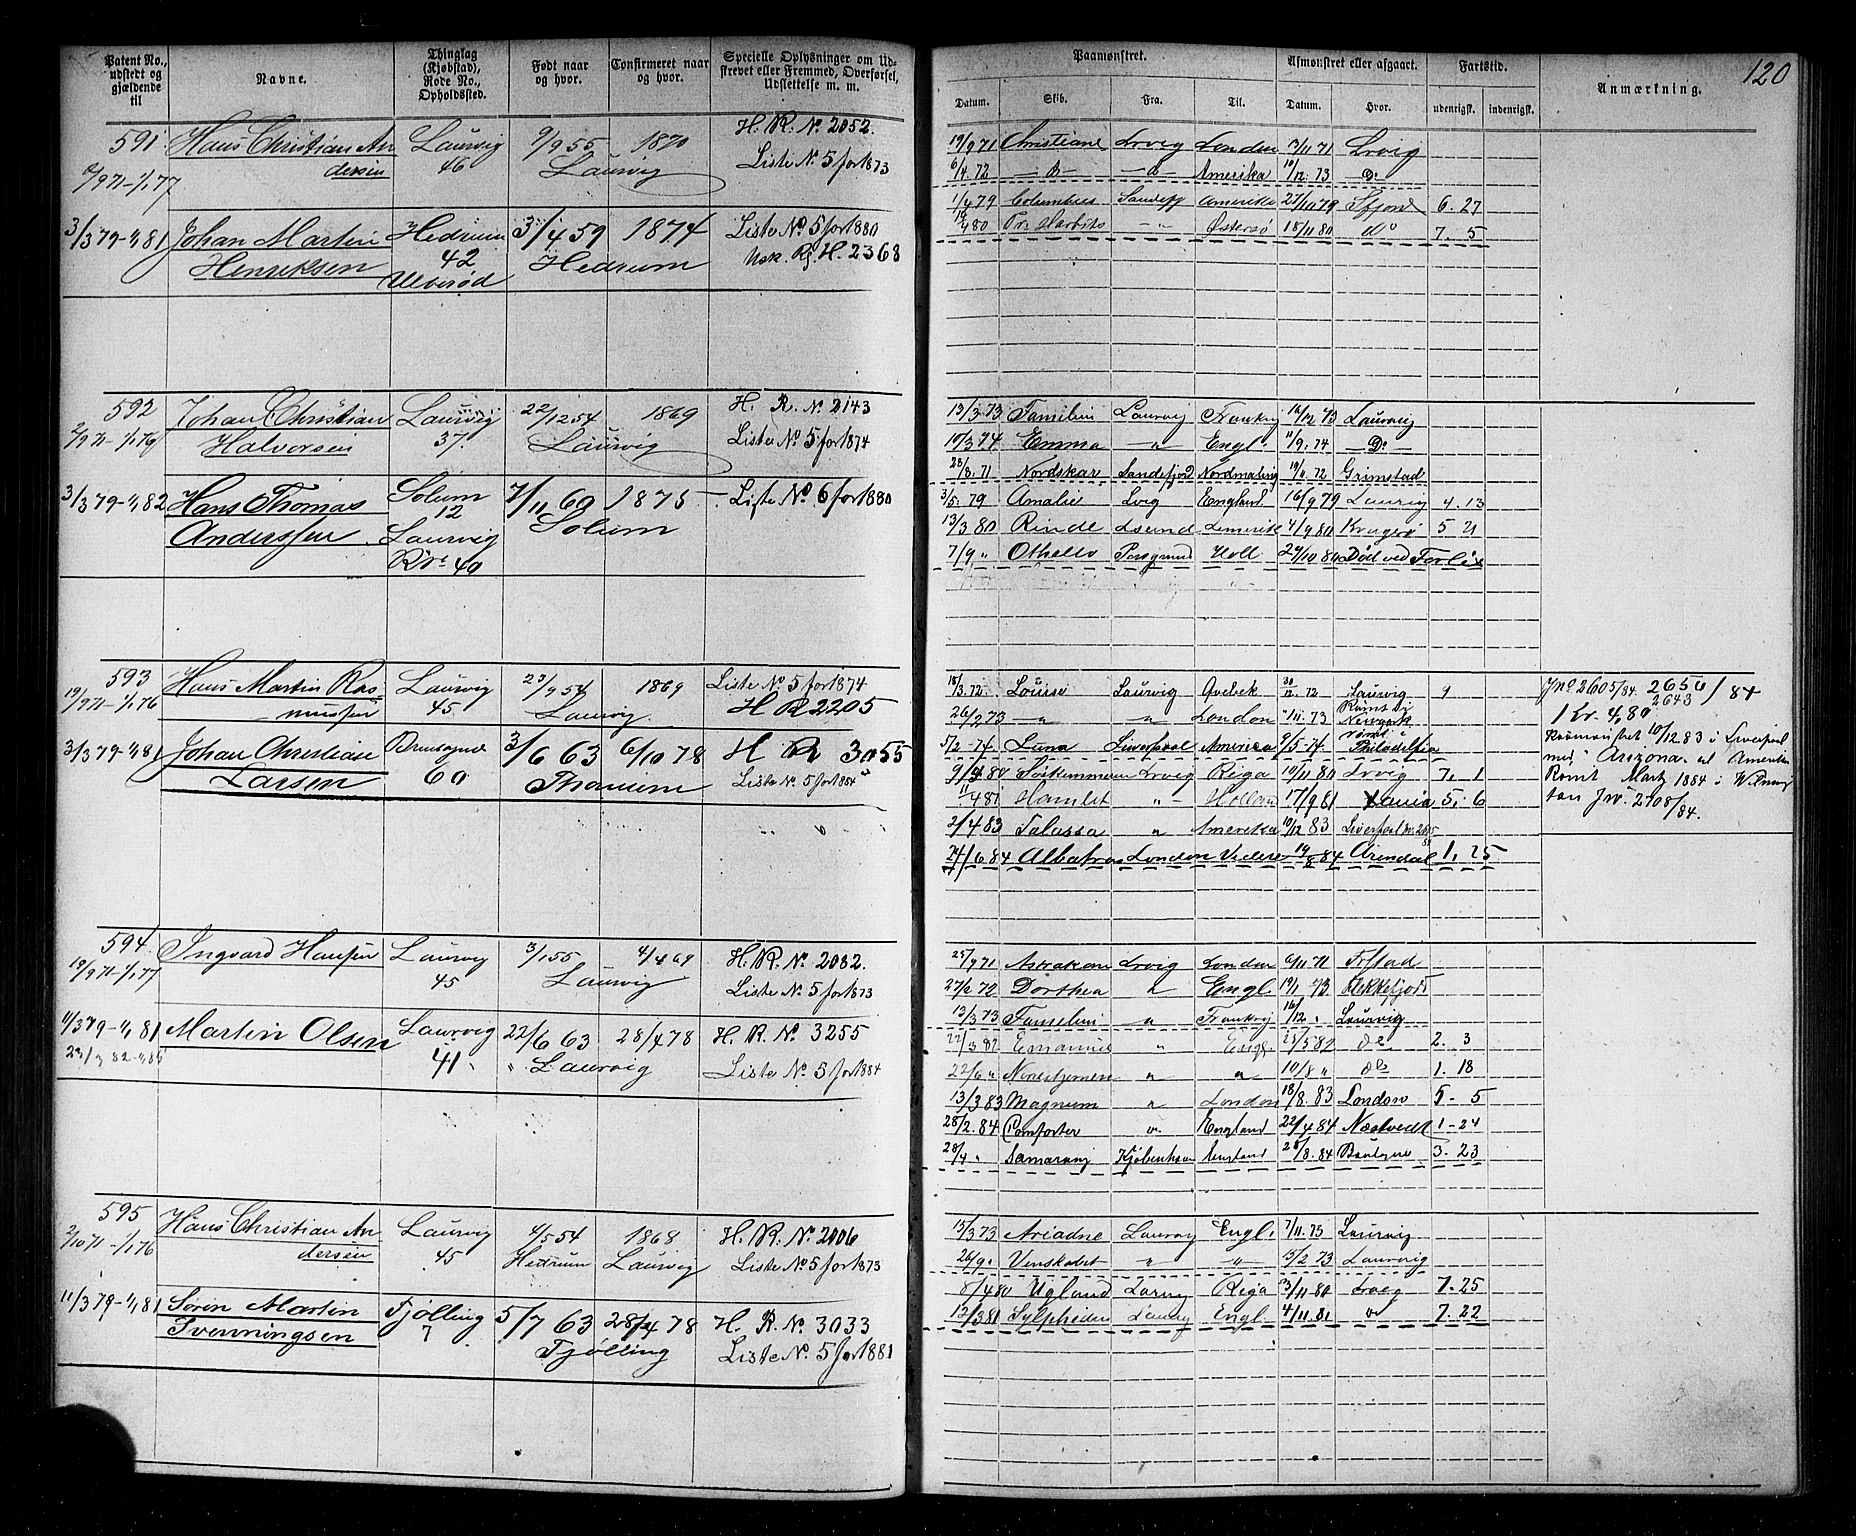 120
Patent No., udstedt og gjældende til
Navne.
Thinglag (Kjøbstad), Rode No., Opholdssted.
Født naar og hvor.
Confirmeret naar og hvor.
Specielle Oplysninger om Udskrevet eller Fremmed, Overførsel, Udslettelse m. m.
Paamønstret.
Afmønstret eller afgaaet.
Fartstid.
Anmærkning.
Datum.
Skib.
Fra.
Til.
Datum.
Hvor.
udenrigsk.
indenrigsk.
591 Hans Christian An Laurvig 9/9 55 1870 H. R. No 2052.
dersen 46 Laurvig Liste No 5 for 1873
3/3 79-1/1 81 Johan Martin Hedrum 3/4 59 1874 Liste No 5 for 1880
Henriksen 42 Hedrum H. 2368
Ulverød
19/9 71 Christiane Lrvig London 13/11 71 Lrvig
6/4. 72 Amerika 19/12. 73 Do
1/4 79 Columbus Sandefj Amerika 27/10 79 6. 27
Østersø 18/11 80 do 7. 5
592 Johan Christian Laurvig 22/12 54 1869 H. R. No 2143
2/9 71-1/1 76 Halvorsen 37. Laurvig Liste No 5 for 1874
3/3 79-1/1 82 Hans Thomas Solum 7/11 60 1875 Liste No 6 for 1880
Anderssen 12 Solum
Laurvig
Rde 40
13/3 73 Familien Laurvig Frankrig 16/12 73 Laurvig
10/3 74 Emma Engl. 11/9. 74 Do
Nordskar Sandefjord Nordmaling 19/11. 72 Grimstad
3/5. 79 Amalie Lvig England 16/9 79 Laurvig 4. 13
13/3 80 Rinde Limerik 4/9 80 Kragerø 5 21
7/9 " Othello Porsgrund Hull 29/10 80 Død ved Forlix
593 Hans Martin Ras Laurvig 23/9 54 1869 Liste No 5 for 1874
19/9 71-1/1 76 mussen 45. Laurvig H R 2205
3/3 79-1/1 81 Johan Christian Brunlagnæs 3/6 63 6/10 78 H R 3055
Larsen 60 Thanum Liste No 5 for 1884
18/3. 72 Louise Laurvig Qvebek 30/12. 72 Laurvig 9
26/2 73 London 11. 73 Rømt i
Newyork
5/2. 74 Luna Liverpool America 9/5. 74 rømt i
Philadelphia
80 Lrvig Riga 10/11 80 Lrvig 7. 1
11/4 81 Hamlet Holland 17/9 81 Xania 5. 6
2/4 83 Talassa Amerika 10/12 83 Liverpool
24/6 84 Albatros London 19/8 84 Arendal 1. 25
Jno 2605/84. 2656/84
1 Kr. 4,80 2643
10/12 83 i Liverpool
med Arizona til Amerika
Rømt Marts 1884 i Wilming
ton Jno 2708/84.
594. Ingvard Hansen Laurvig 3/1 55 4/4 69 H. R. No 2082.
19/9 71-1/1 77 45 Laurvig Liste No 5 for 1873
11/3 79-1/1 81 Martin Olsen Laurvig 22/6 63 28/4 78 H. R. No 3255
23/3 82-1/1 85 41. Laurvig Liste No 5 for 1884
25/9 71 Astrakan Lrvig London 6/11 71 Frstad
27/2 72 Dorthea Engl. 19/1 73 Flekkefjord
13/3 73 Familien Frankrig 16/12 " Laurvig
22/3 82 Emanuel " Engl. 25/5 82 do 2. 3
22/6 " 10/8 " do 1. 18
13/3 83 Magnum London 18/8. 83 London 5- 5
28/2. 84 Comforter England 22/4 84 Næstvedt 1-24
28/4 " Samarang Kjøbenhavn England 28/8. 84 3. 23
595 Hans Christian An Laurvig 4/5 54 1868 H. R. No 2006
2/10 71-1/1 76 dersen 45 Hedrum Laurvig Liste No 5 for 1873
11/3 79-1/1 81 Søren Martin Tjølling 5/7 63 28/4 78 H. R. No 3033
Svenningsen 7 Tjølling Liste No 5 for 1881
15/3 73 Ariadne Laurvig Engl. 7/11. 73 Laurvig
26/9 " Venskabet " " 15/2 73 Laurvig
8/4 80 Ugland Larvig Riga 3/11 80 Lrvig 7. 25
12/3 81 Sylpheden Laurvig Engl 4/11. 81 7. 22